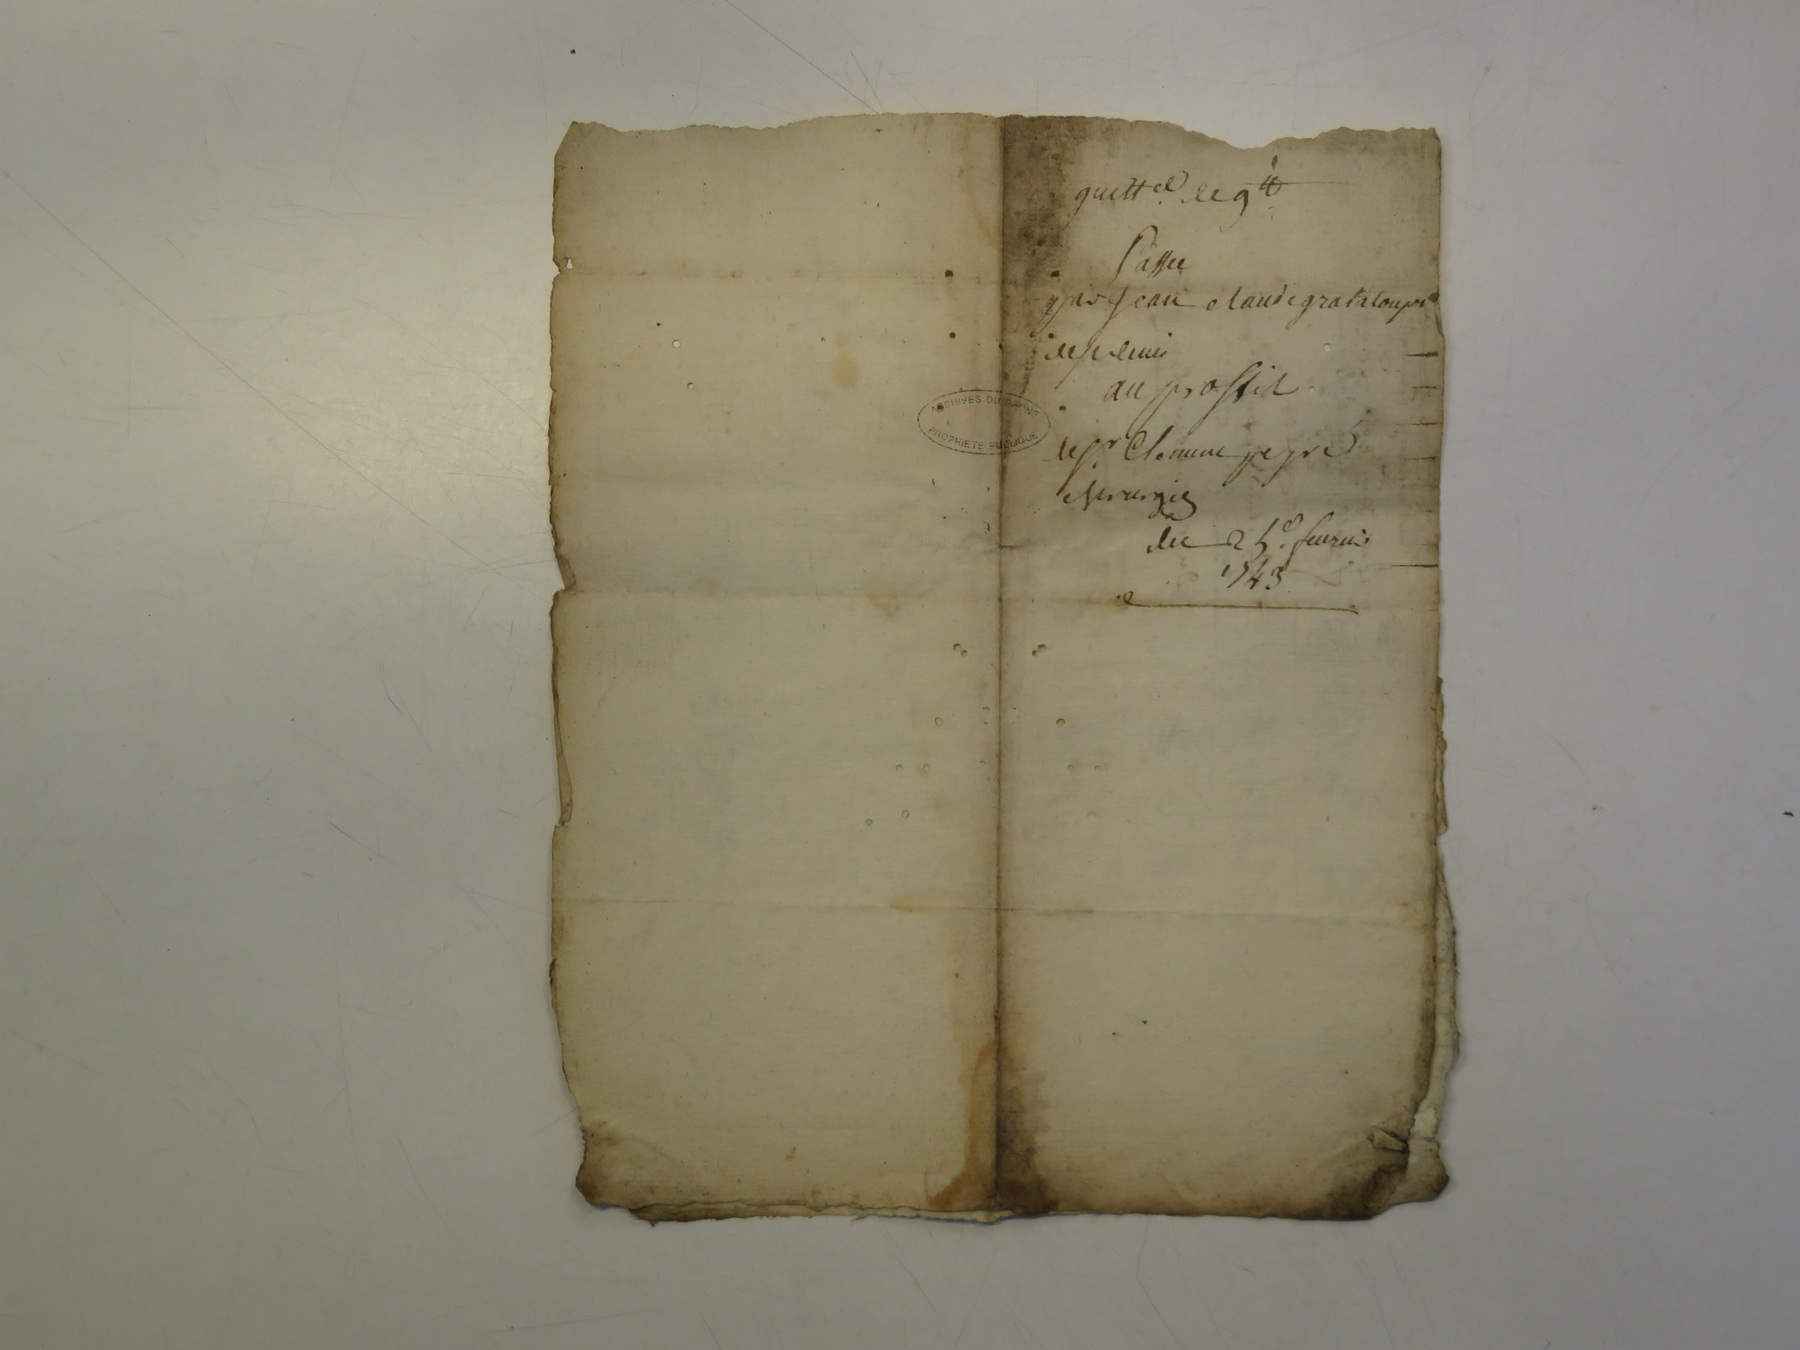 quitt.ce de 9 tt
Passee
par Jean claude grataloup
de
au proffit
de sr Etienne peyré
chirurgien
du 25e. fevrier
1743
ARCHIVES DU RHÔNE
PROPRIETE PUBLIQUE